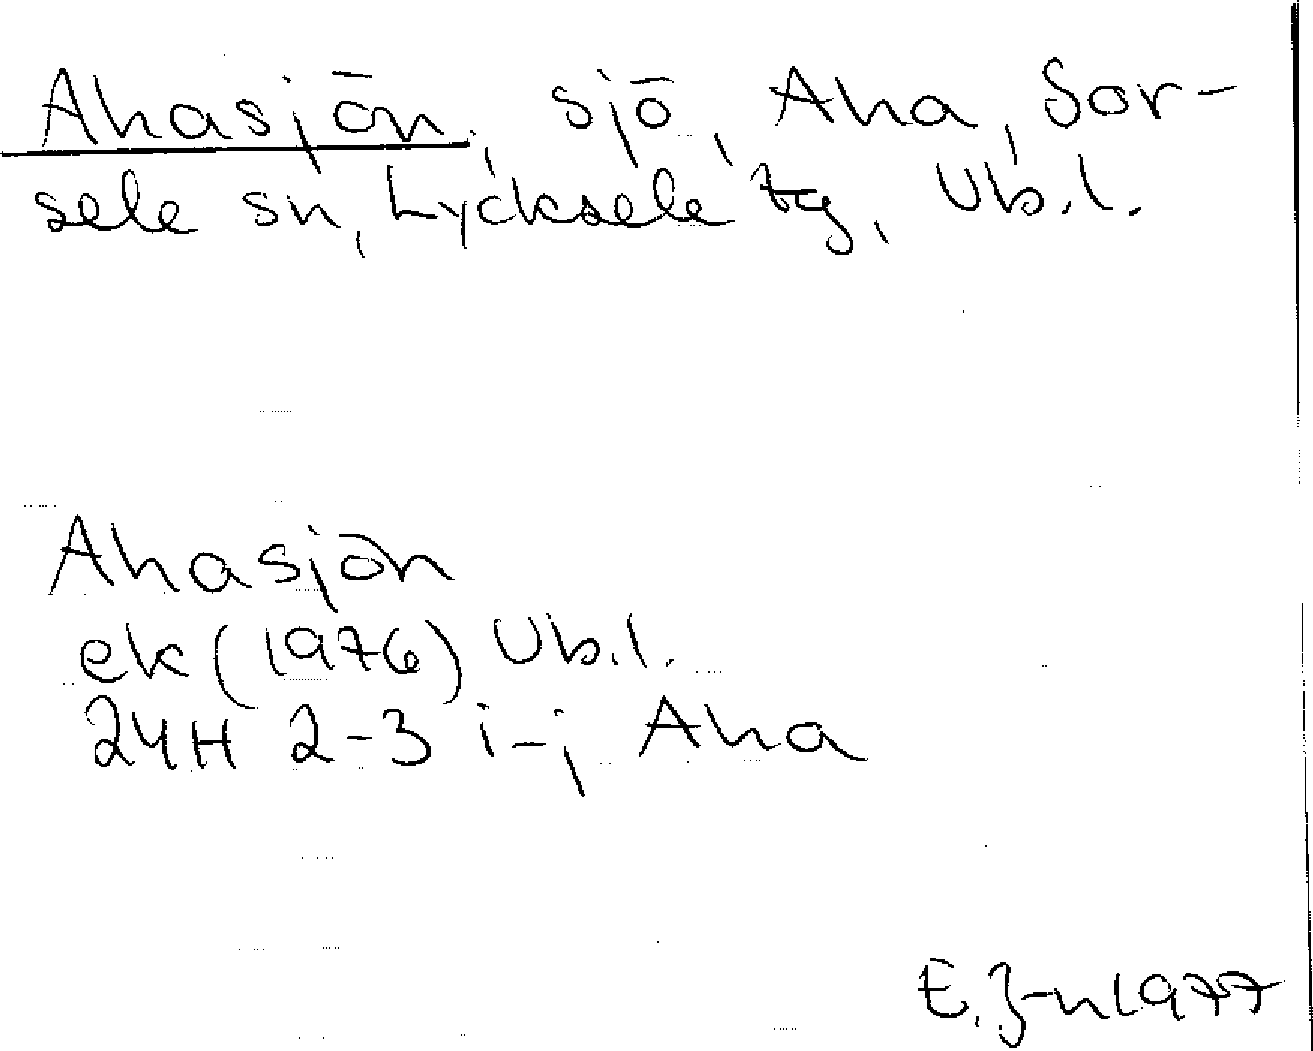 Ahasjön, sjö, Aha, Sor-
sele sn, Lycksele tg, Vb.l.
Ahasjön
ek (1976) Vb.l.
24H 2-3 i-j Aha
E. J-n 1977